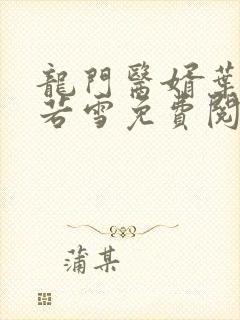 龍門醫婿葉
若雪免費閱
蒲某